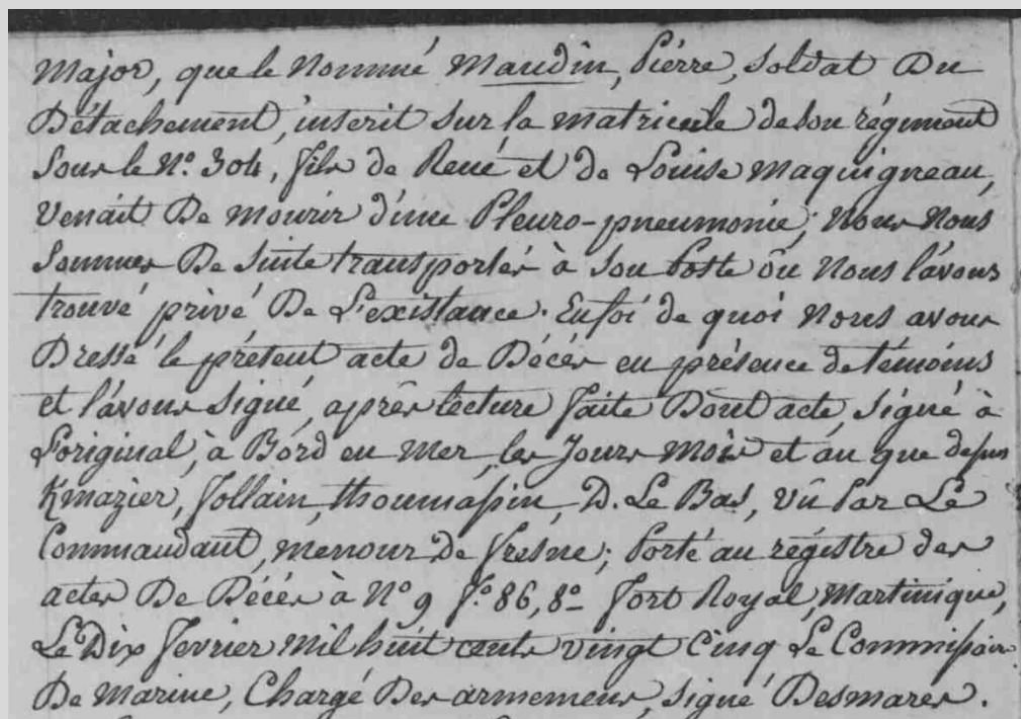 Major, que le Nommé Maudin, Pierre, Soldat Du
Détachement, inscrit sur la matricule de son régiment
Sous le N.º 304, fils de René et de Louise Maquigneau,
Venait De mourir d'une Pleuro-pneumonie; Nous Nous
Sommes De Suite transportés à Son Poste où Nous l'avons
trouvé privé De L'existance. En foi de quoi Nous avons
Dressé le présent acte de Décès en présence de témoins
et l'avons Signé, après lecture faite Dont acte, Signé à
L'original, à Bord en Mer, les Jours Mois et an que dessus
Kmazier, Jollain, thoumassin, D. Le Bas, Vû Par Le
Commandant, menour De fresne; Porté au régistre des
actes De Décès à N.º 9 f.º 86, 8.º Fort Royal, Martinique,
Le Dix Fevrier Mil huit cents vingt Cinq Le Commissaire
De Marine, Chargé Des armemens, Signé Desmares.